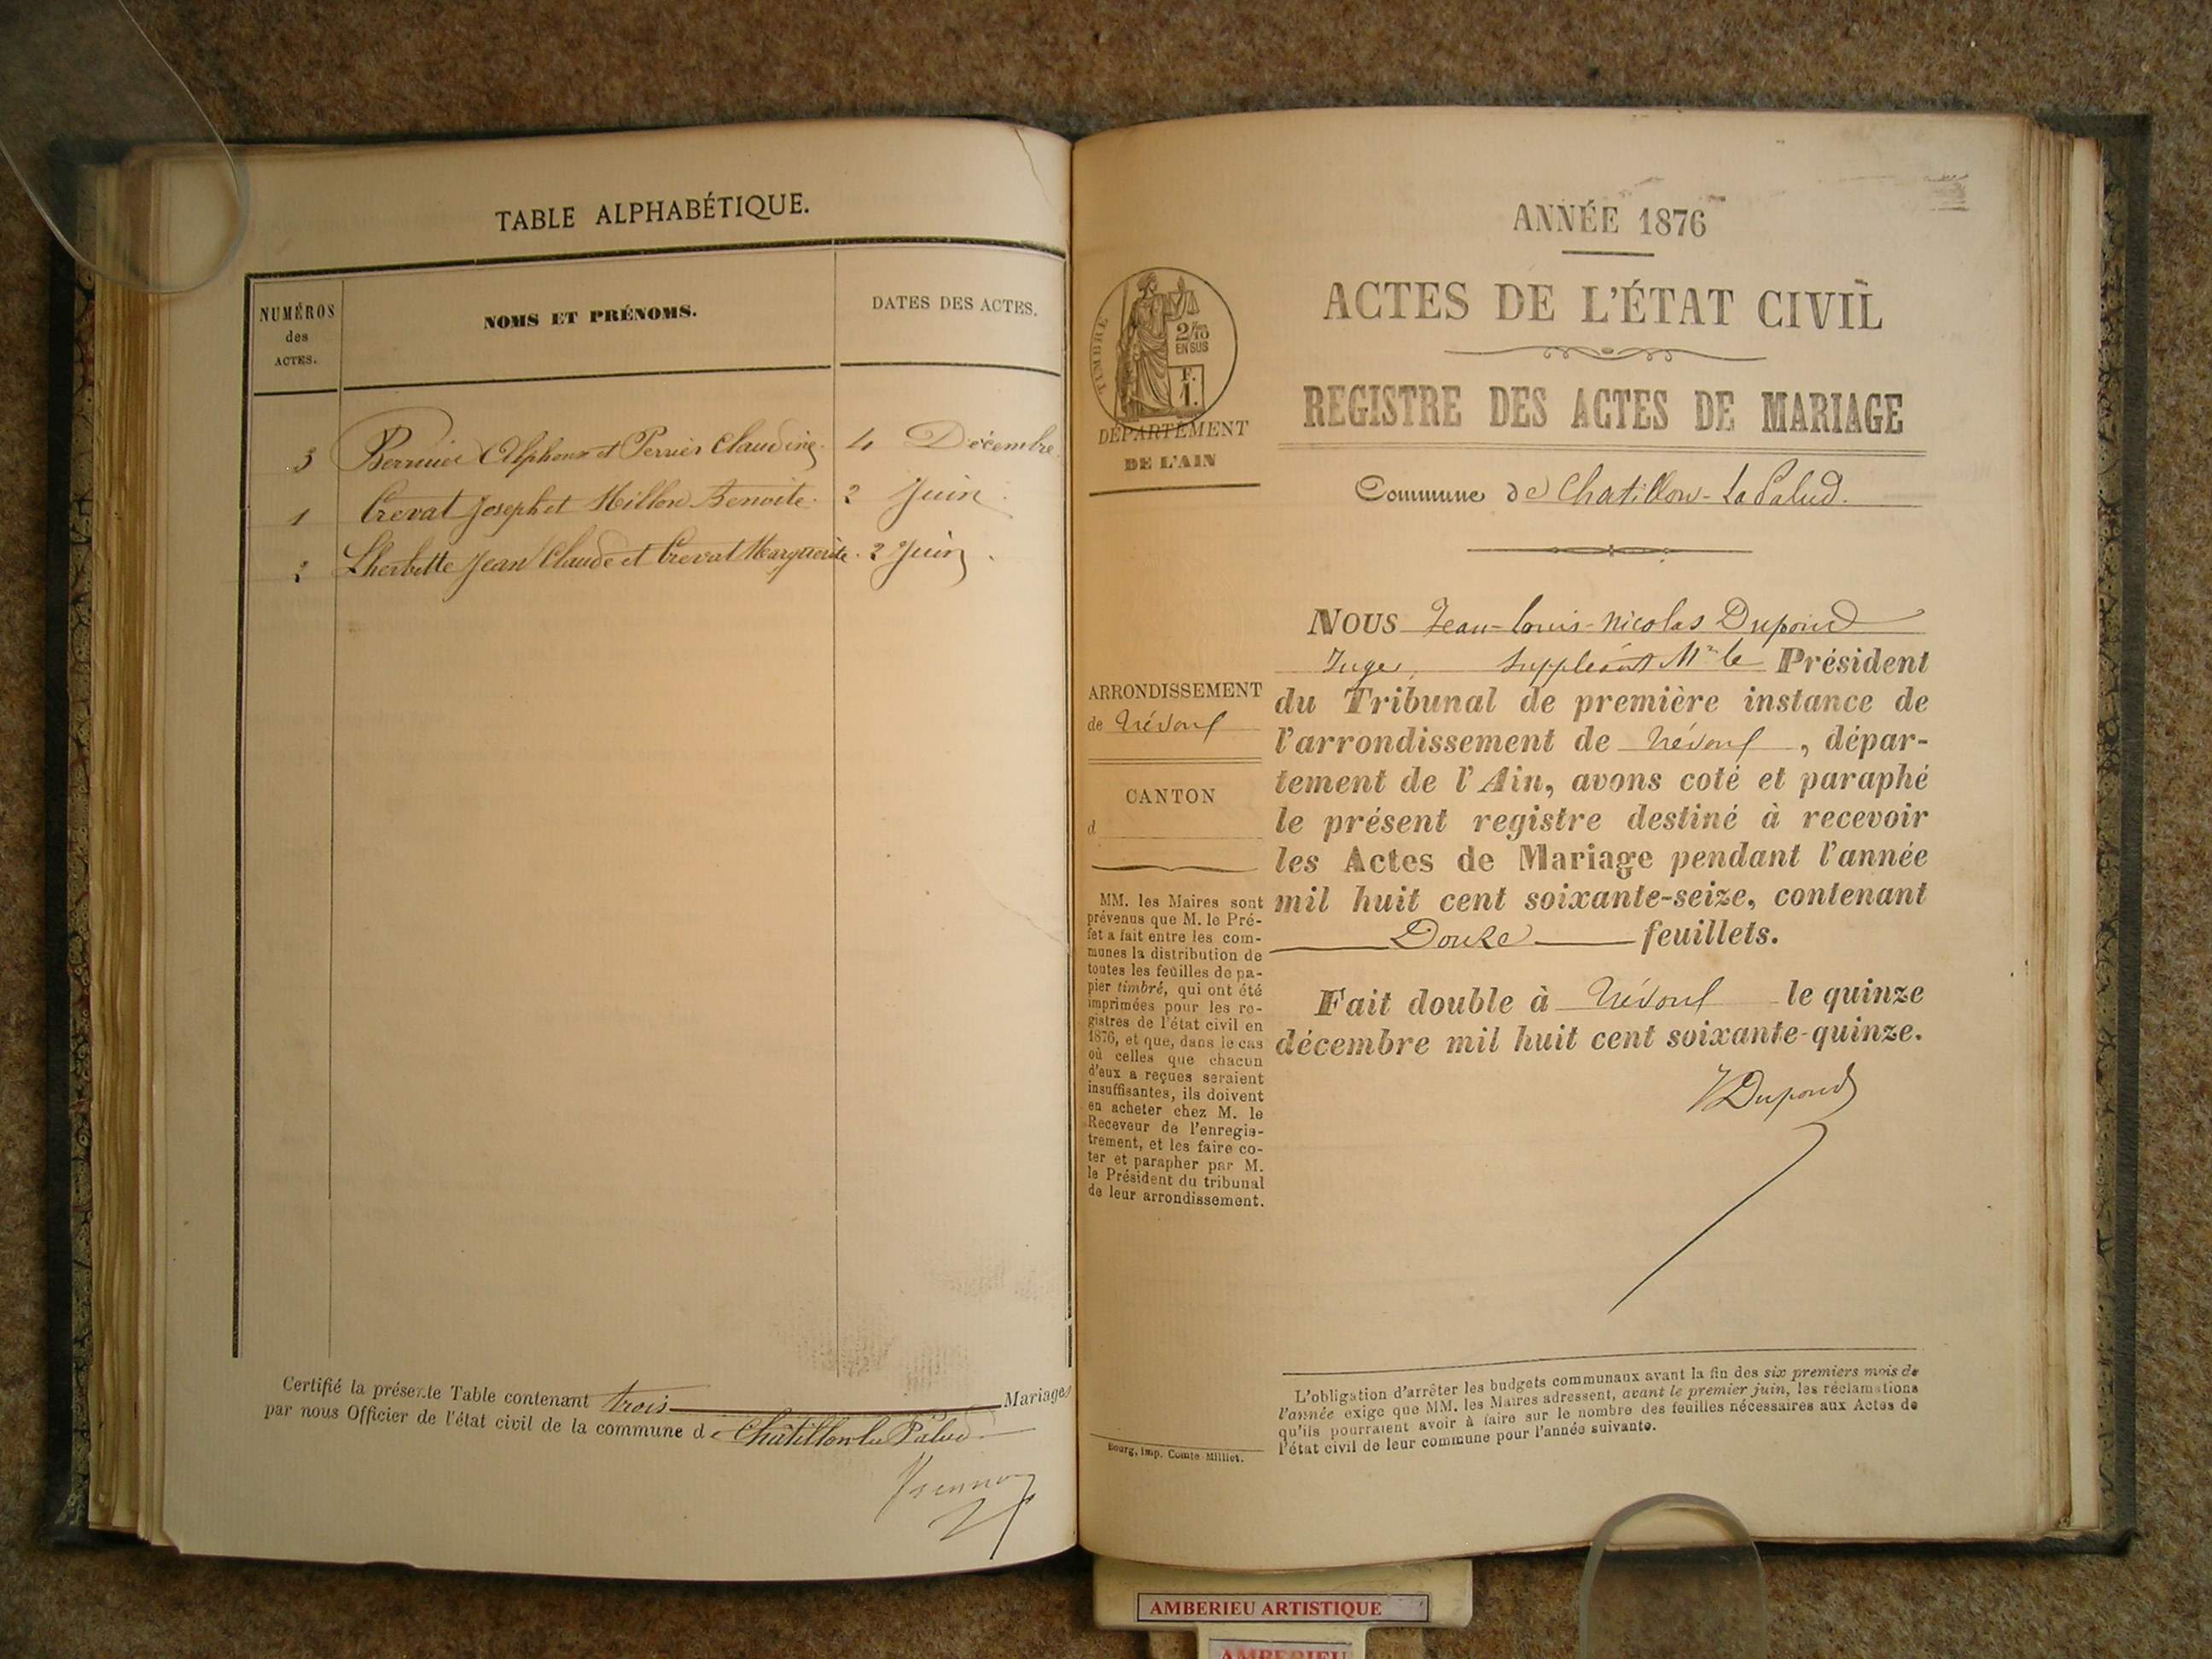 TABLE ALPHABÉTIQUE.
NUMÉROS
des
ACTES.
NOMS ET PRÉNOMS.
DATES DES ACTES.
3 Bernier Alphonse et Perrier Claudine. 4 Décembre
1 Crevat Joseph et Millon Benoite. 2 Juin.
2 Lherbette Jean Claude et Crevat Marguerite. 2 Juin.
Certifié la présente Table contenant trois Mariages
par nous Officier de l'état civil de la commune de Châtillon la Palud
ANNÉE 1876
ACTES DE L'ÉTAT CIVIL
REGISTRE DES ACTES DE MARIAGE
Commune de Chatillon-La Palud.
TIMBRE
2/10
EN SUS
F.
1.
DÉPARTEMENT
DE L'AIN
ARRONDISSEMENT
de Trévoux
CANTON
d
MM. les Maires sont
prévenus que M. le Pré-
fet a fait entre les com-
munes la distribution de
toutes les feuilles de pa-
pier timbré, qui ont été
imprimées pour les re-
gistres de l'état civil en
1876, et que, dans le cas
où celles que chacun
d'eux a reçues seraient
insuffisantes, ils doivent
en acheter chez M. le
Receveur de l'enregis-
trement, et les faire co-
ter et parapher par M.
le Président du tribunal
de leur arrondissement.
NOUS Jean-Louis-Nicolas Dupond
Juge, suppléant Mr le Président
du Tribunal de première instance de
l'arrondissement de Trévoux, dépar-
tement de l'Ain, avons coté et paraphé
le présent registre destiné à recevoir
les Actes de Mariage pendant l'année
mil huit cent soixante-seize, contenant
Douze feuillets.
Fait double à Trévoux le quinze
décembre mil huit cent soixante-quinze.
JDupond
L'obligation d'arrêter les budgets communaux avant la fin des six premiers mois de
l'année exige que MM. les Maires adressent, avant le premier juin, les réclamations
qu'ils pourraient avoir à faire sur le nombre des feuilles nécessaires aux Actes de
l'état civil de leur commune pour l'année suivante.
Bourg, imp. Comte-Milliet.
AMBERIEU ARTISTIQUE
AMBERIEU